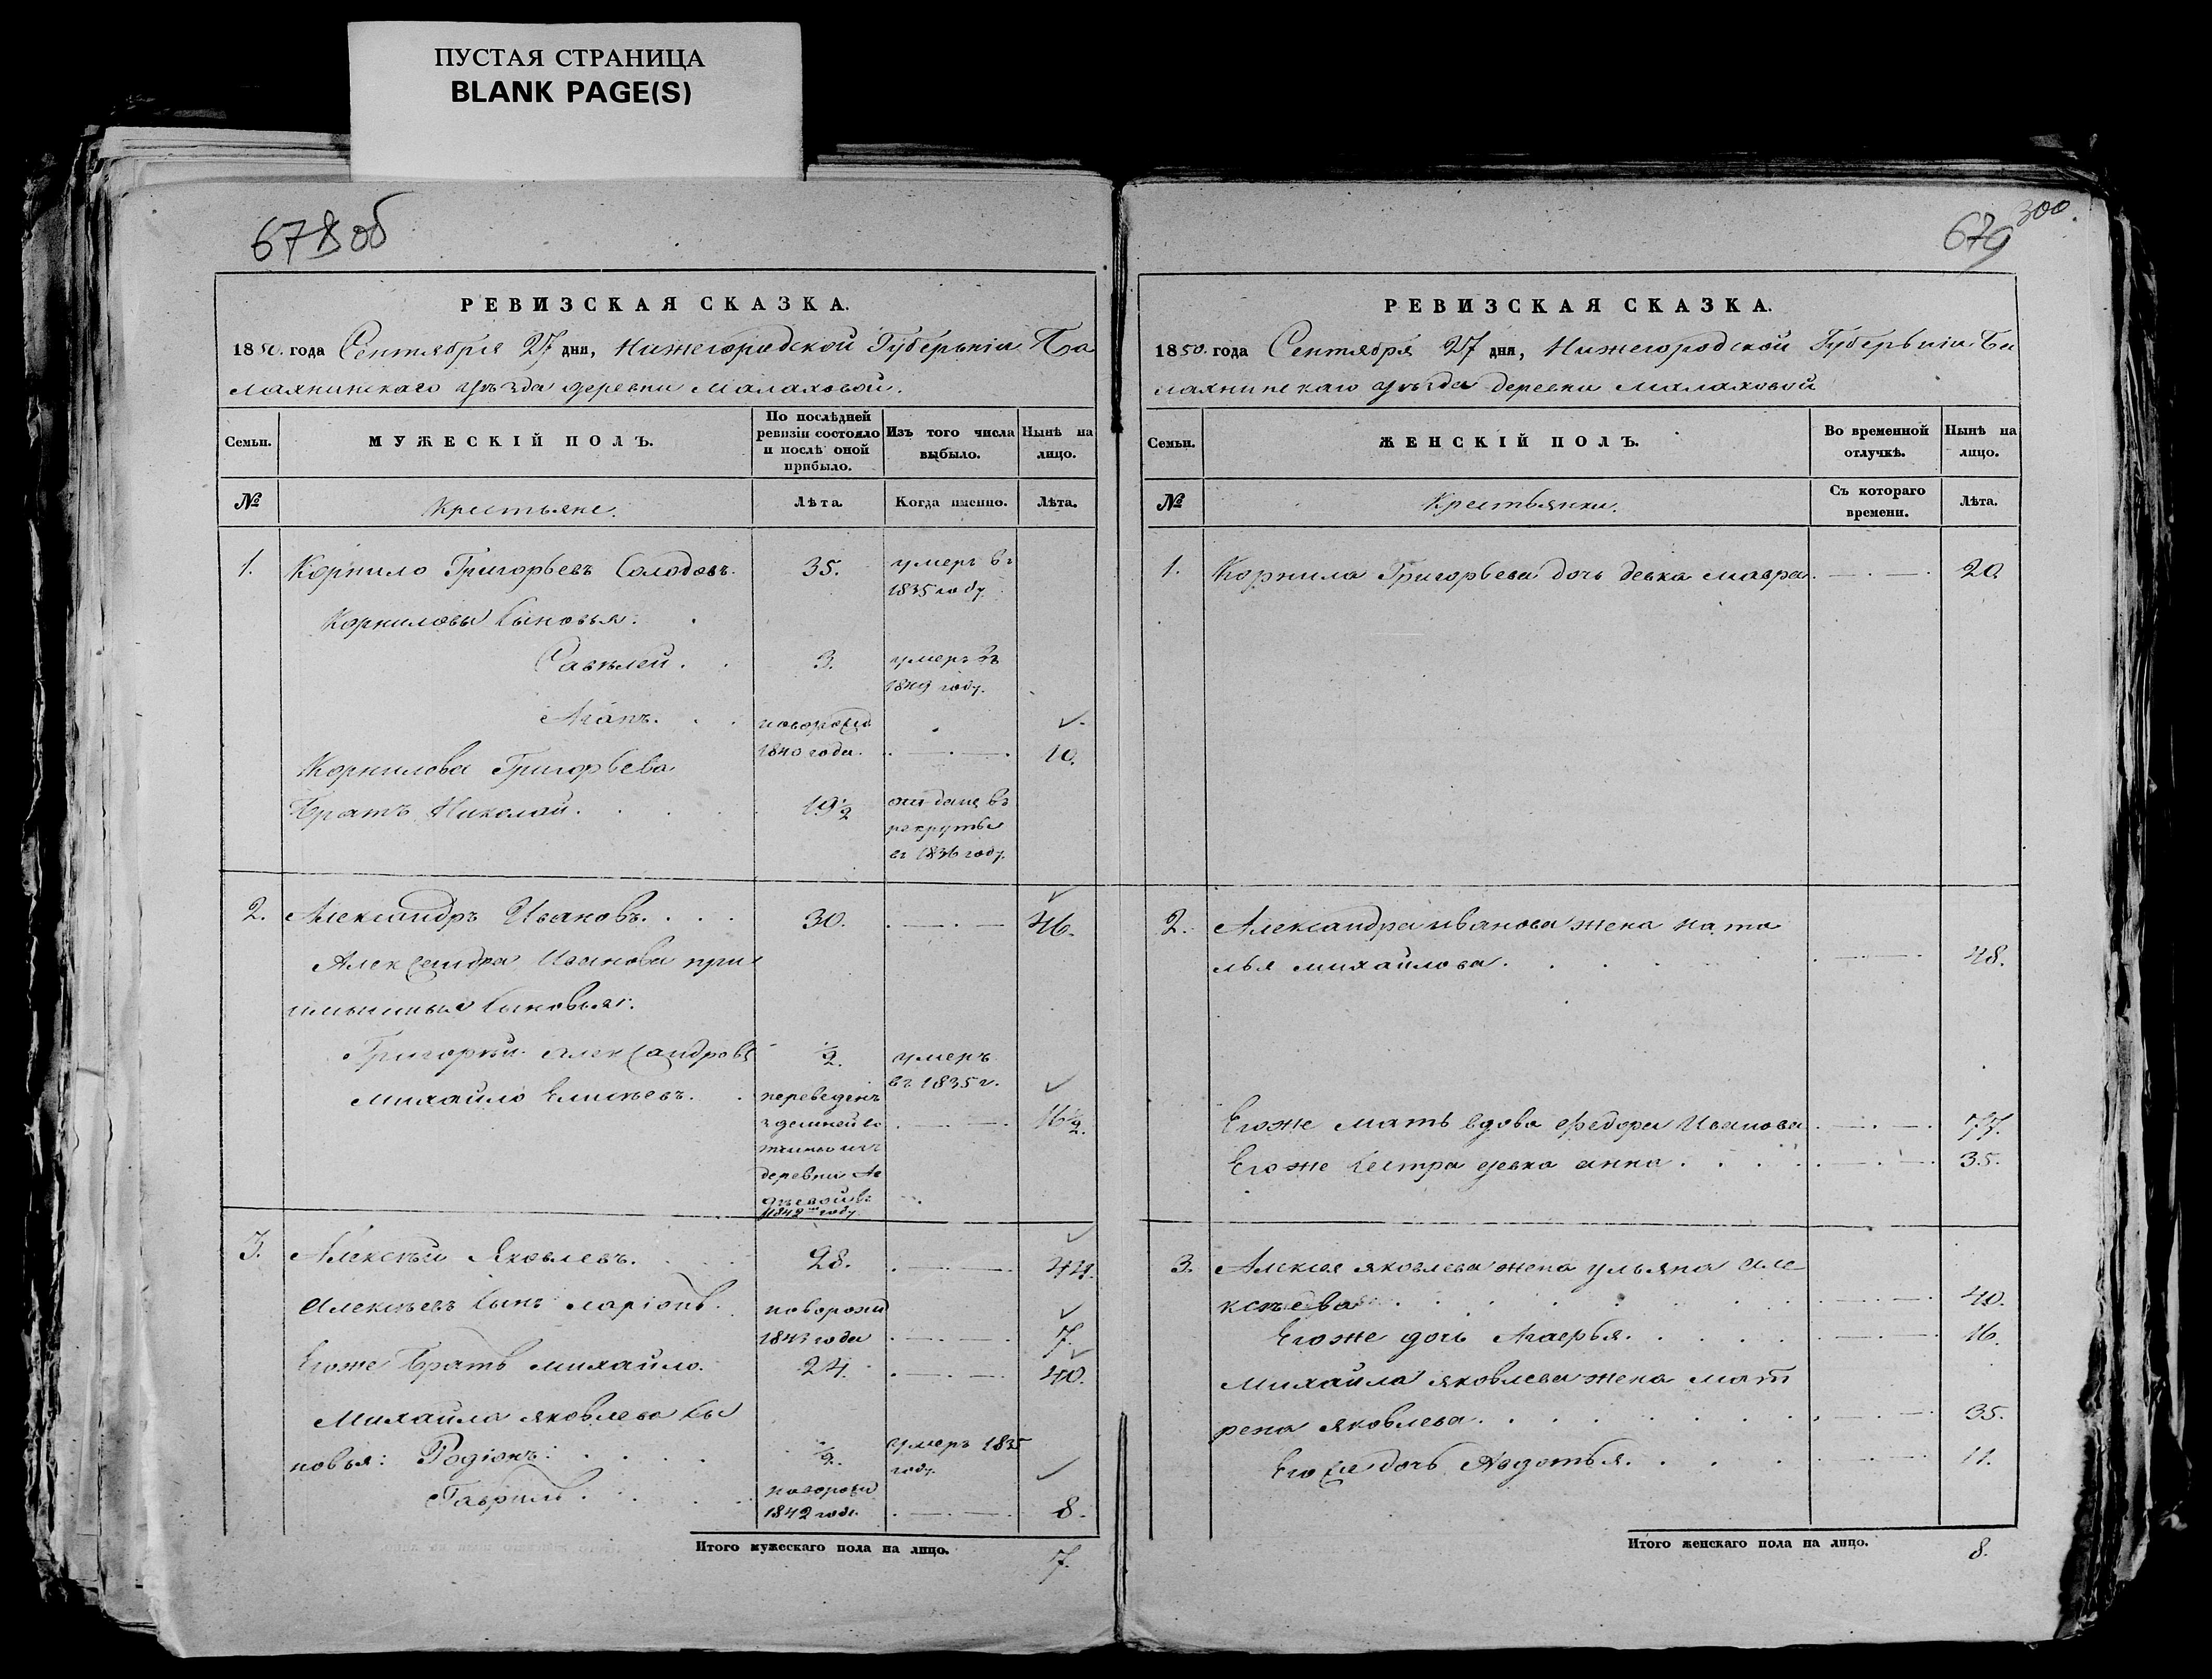 ПУСТАЯ СТРАНИЦА
BLANK PAGE(S)
678 об
РЕВИЗСКАЯ СКАЗКА.
1850. года Сентября 27 дня, Нижегородской Губерьніи Ба
лахнинскаго уѣзда деревни Малаховой.
Семьи. МУЖЕСКІЙ ПОЛЪ. По послѣдней ревизіи состояло и послѣ оной прибыло. Изъ того числа выбыло. Нынѣ на лицо.
№ Крестьяне. Лѣта. Когда именно. Лѣта.
1. Корнило Григорьевъ Солодовъ. 35. умеръ въ
1835 году.
Корниловы сыновья:
Савѣлей. 3. умеръ въ
1849 году.
Агапъ. новорожд
1840 года. 10.
Корнилова Григорьева
Братъ Николай. 19½ отданъ въ
рекруты
въ 1836 году.
2. Александръ Ивановъ. 30. 46.
Александра Иванова при
сыновья:
Григорій Александровъ ½. умеръ
въ 1835 г.
Михайло переведенъ 16½.
деревни
1842 году
3. Алексѣй Яковлевъ. 28. 44.
Алексѣевъ сынъ Ларіонъ. новорожд
1843 года 7.
Егоже Братъ Михайло. 24. 40.
Михайла Яковлева сы
новья: Родіонъ: ½. умеръ 1835
году.
Гаврило. новорожд
1842 года. 8.
Итого мужескаго пола на лицо. 7.
679
300.
РЕВИЗСКАЯ СКАЗКА.
1850. года Сентября 27 дня, Нижегородской Губерьніи Ба
лахнинскаго уѣзда деревни Малаховой
Семьи. ЖЕНСКІЙ ПОЛЪ. Во временной отлучкѣ. Нынѣ на лицо.
№ Крестьянки. Съ котораго времени. Лѣта.
1. Корнила Григорьева дочь девка Мавра. 20.
2. Александра Иванова жена Ната
лья Михайлова. 48.
Егоже мать вдова Федора Иванова 77.
Егоже сестра девка Анна. 35.
3. Алексея Яковлева жена Ульяна Але
ксѣева 40.
Егоже дочь 16.
Михайла Яковлева жена Мат
рена Яковлева. 35.
Егоже дочь Авдотья. 11.
Итого женскаго пола на лицо. 8.